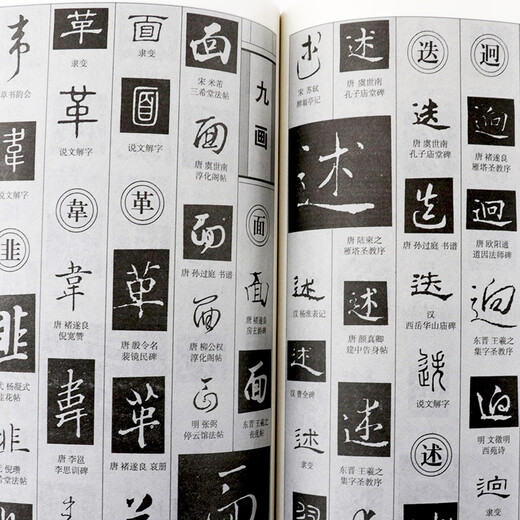 迥
迥
唐 褚遂良
雁塔圣教序
迥
唐 欧阳通
道因法师碑
迥
东晋 王羲之
集字圣教序
迥
明 文徵明
西苑诗
迭
迭
唐 虞世南
孔子庙堂碑
迭
唐 孙过庭 书谱
迭
汉
西岳华山庙碑
说文解字
述
述
唐 虞世南
孔子庙堂碑
述
唐 陆柬之
雁塔圣教序
述
唐 颜真卿
建中告身帖
述
东晋 王羲之
集字圣教序
述
宋 苏轼
醉翁亭记
述
汉 杨淮表记
述
汉 曹全碑
述
隶变
九画
面
面
唐 褚遂良
房玄龄碑
面
东晋 王羲之
面
宋 米芾
三希堂法帖
面
唐 虞世南
淳化阁帖
面
唐 孙过庭 书谱
面
唐 柳公权
淳化阁帖
面
明 张弼
停云馆法帖
面
面
隶变
面
说文解字
革
革
唐 殷令名
裴镜民碑
革
唐 褚遂良 哀册
革
隶变
革
说文解字
韋
韋
唐 褚遂良
倪宽赞
韋
唐 李邕
李思训碑
韋
草书韵会
韋
说文解字
韭
韭
杨凝式
韭花帖
韭
倪瓒